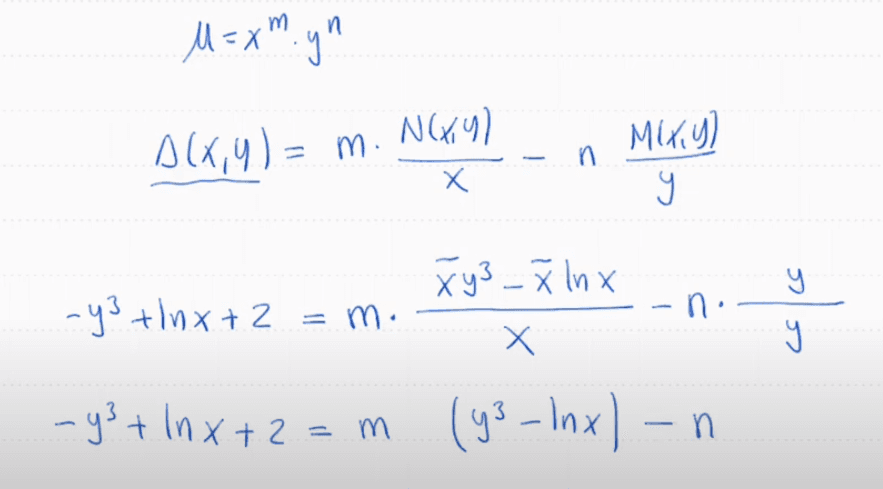 μ = x^m . y^n
Δ(x,y) = m . N(x,y)/x - n M(x,y)/y
-y³ + ln x + 2 = m . (x̄y³ - x̄ ln x)/x - n . y/y
-y³ + ln x + 2 = m (y³ - ln x) - n